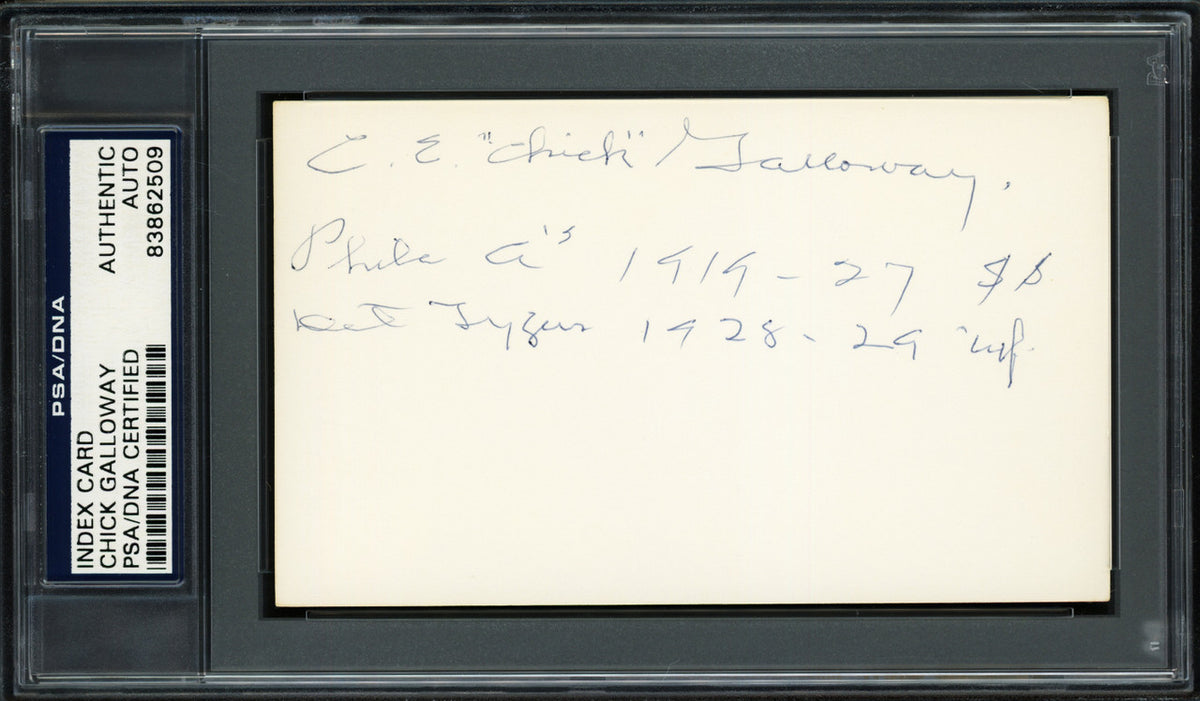 PSA/DNA
INDEX CARD
CHICK GALLOWAY
PSA/DNA CERTIFIED
AUTHENTIC
AUTO
83862509
C. E. "Chick" Galloway.
Phila A's 1919-27 SS.
Det Tygers 1928-29 inf.